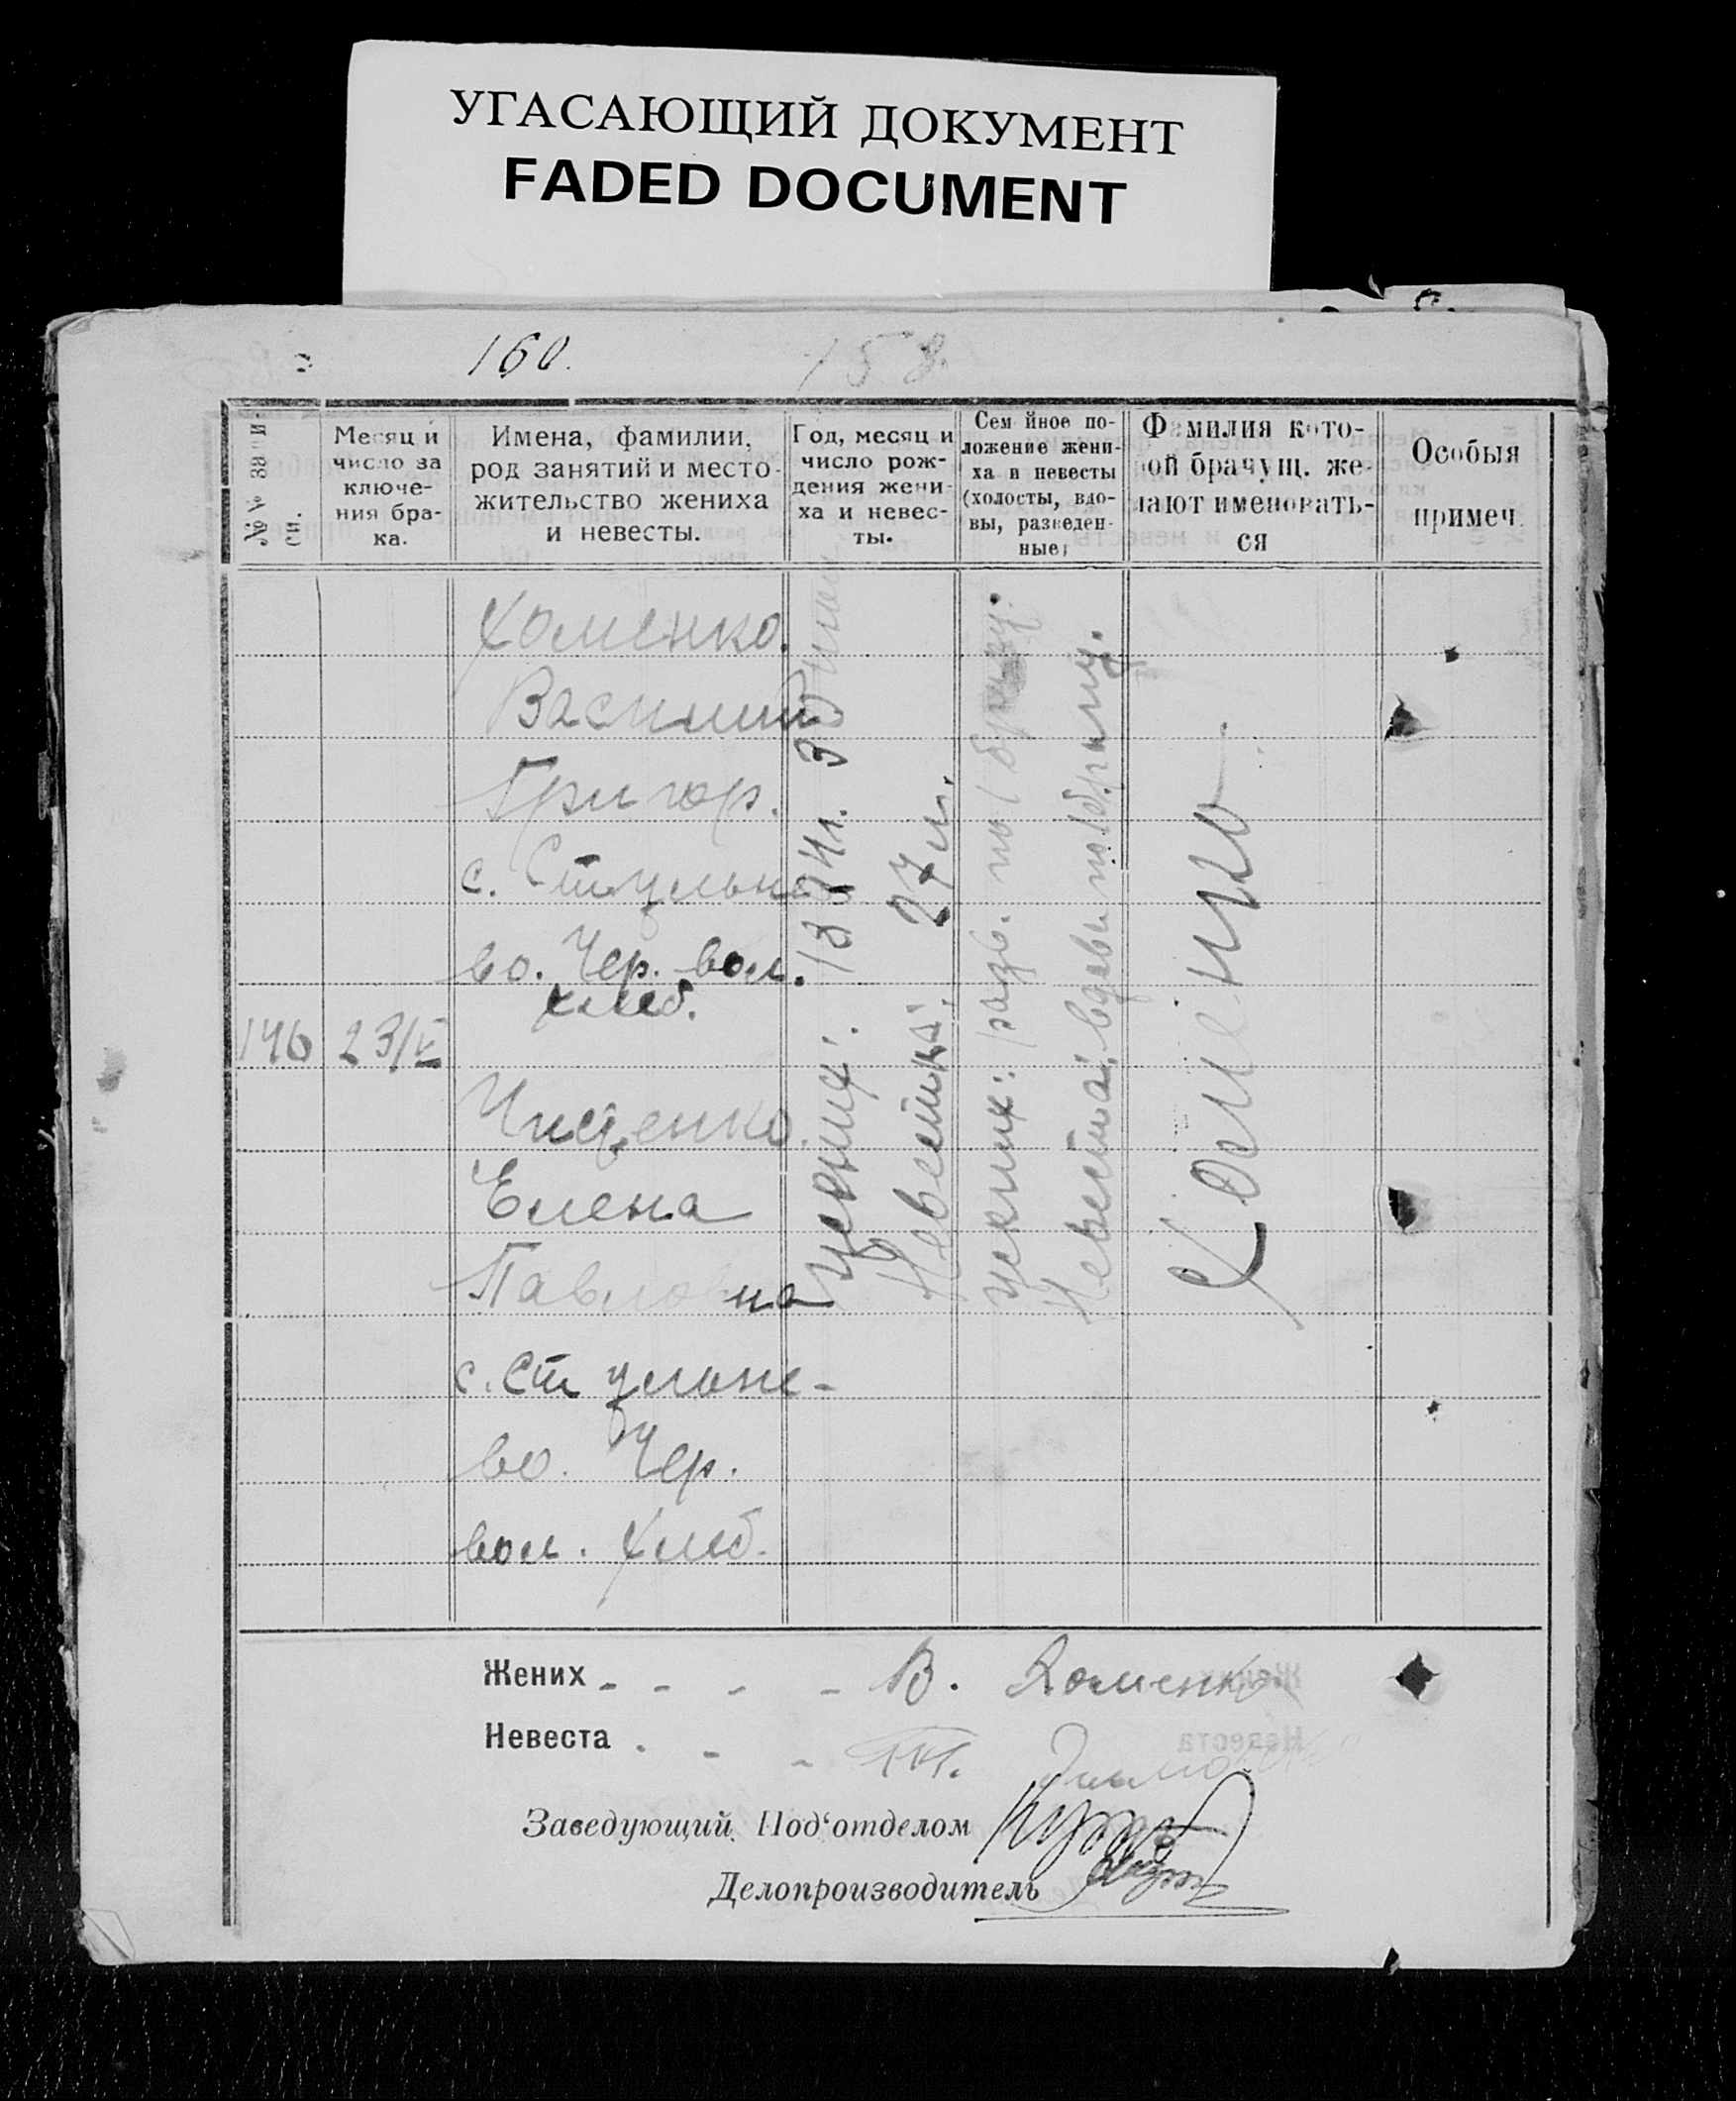 УГАСАЮЩИЙ ДОКУМЕНТ
FADED DOCUMENT
160.
158.
№№ записи.
Месяц и
число за
ключе-
ния бра-
ка.
Имена, фамилии,
род занятий и место-
жительство жениха
и невесты.
Год, месяц и
число рож-
дения жени-
ха и невес-
ты.
Семейное по-
ложение жени-
ха и невесты
(холосты, вдо-
вы, разведен-
ные)
Фамилия кото-
рой брачущ. же-
лают именовать-
ся
Особыя
примеч.
146
23/V
Хоменко.
Василий
Григор.
с. Стульне
во. Чер. вол.
хлеб.
Чищенко.
Елена
Павловна
с. Стульне-
во. Чер.
вол. Хлеб.
Жених: 1894 г. 30
Невеста: 27 л.
Жених: разв. по 1 браку.
Невеста: вдова по 1 браку.
Хоменко
Жених - - - - В. Хоменко
Невеста - - -
Заведующий Под'отделом
Делопроизводитель